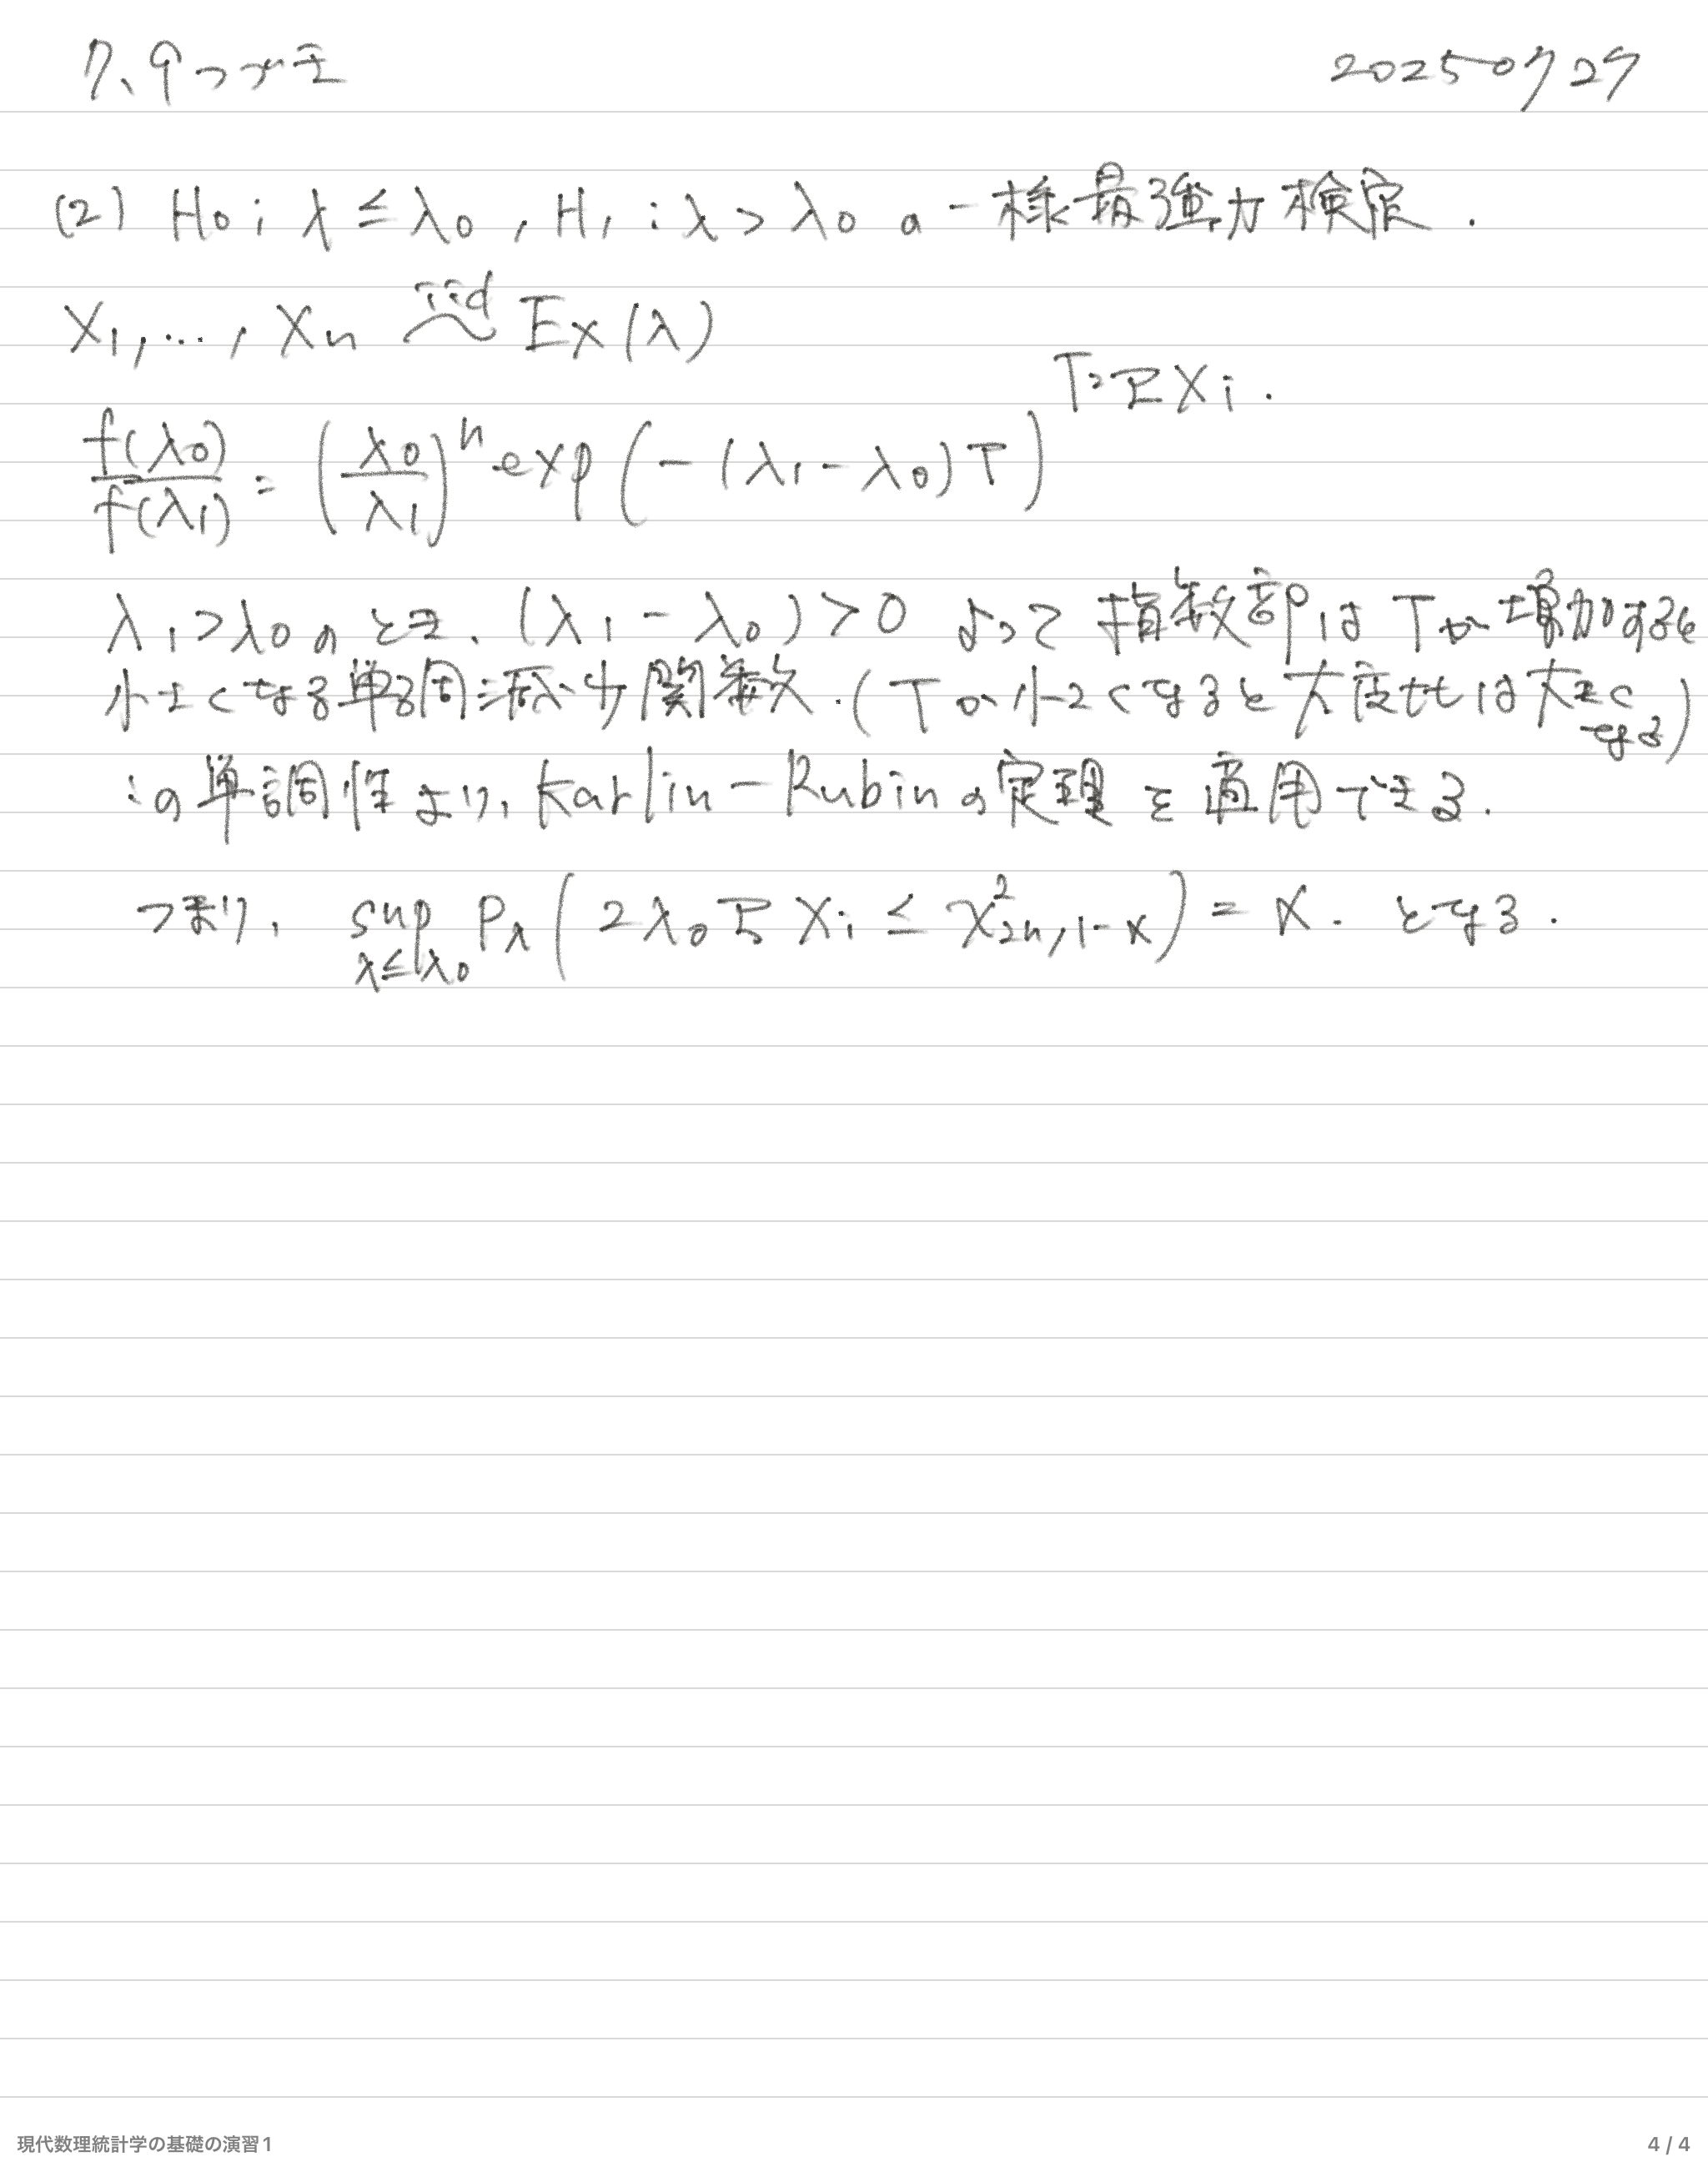 7.9つづき 20250727
(2) H₀: λ ≤ λ₀, H₁: λ > λ₀ の一様最強力検定.
X₁, …, Xₙ iid ~ Ex(λ)
T=ΣXi.
f(λ₀)/f(λ₁) = (λ₀/λ₁)ⁿ exp(-(λ₁-λ₀)T)
λ₁>λ₀のとき、(λ₁-λ₀)>0 よって指数部はTが増加すると
小さくなる単調減少関数.(Tが小さくなると尤度比は大きくなる)
この単調性より, Karlin-Rubinの定理を適用できる.
つまり, sup_{λ≤λ₀} P_λ(2λ₀ΣXi ≤ χ²_{2n,1-α}) = α. となる.
現代数理統計学の基礎の演習1 4 / 4